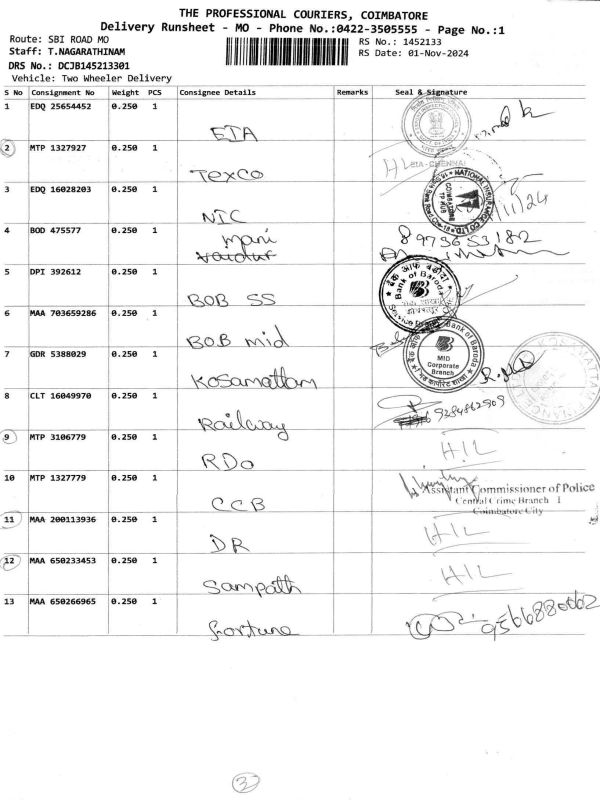 THE PROFESSIONAL COURIERS, COIMBATORE
Delivery Runsheet - MO - Phone No.:0422-3505555 - Page No.:1
Route: SBI ROAD MO
RS No.: 1452133
Staff: T.NAGARATHINAM
RS Date: 01-Nov-2024
DRS No.: DCJB145213301
Vehicle: Two Wheeler Delivery
S No Consignment No Weight PCS Consignee Details Remarks Seal & Signature
1 EDQ 25654452 0.250 1
EIA
2 MTP 1327927 0.250 1
EIA-CHENNAI
Texco
3 EDQ 16028203 0.250 1
NATIONAL INSURANCE CO.LTD.
COIMBATORE
NIC
4 BOD 475577 0.250 1
mani
8973653182
5 DPI 392612 0.250 1
बैंक ऑफ बड़ौदा
Bank of Baroda
BOB SS
6 MAA 703659286 0.250 1
Bank of Baroda
BOB mid
MID
Corporate
Branch
7 GDR 5388029 0.250 1
Kosamattam
8 CLT 16049970 0.250 1
9384862909
Railway
9 MTP 3106779 0.250 1
HIL
RDO
10 MTP 1327779 0.250 1
Assistant Commissioner of Police
Central Crime Branch I
Coimbatore City
CCB
11 MAA 200113936 0.250 1
HIL
DR
12 MAA 650233453 0.250 1
HIL
Sampath
13 MAA 650266965 0.250 1
9566880062
fortune
3